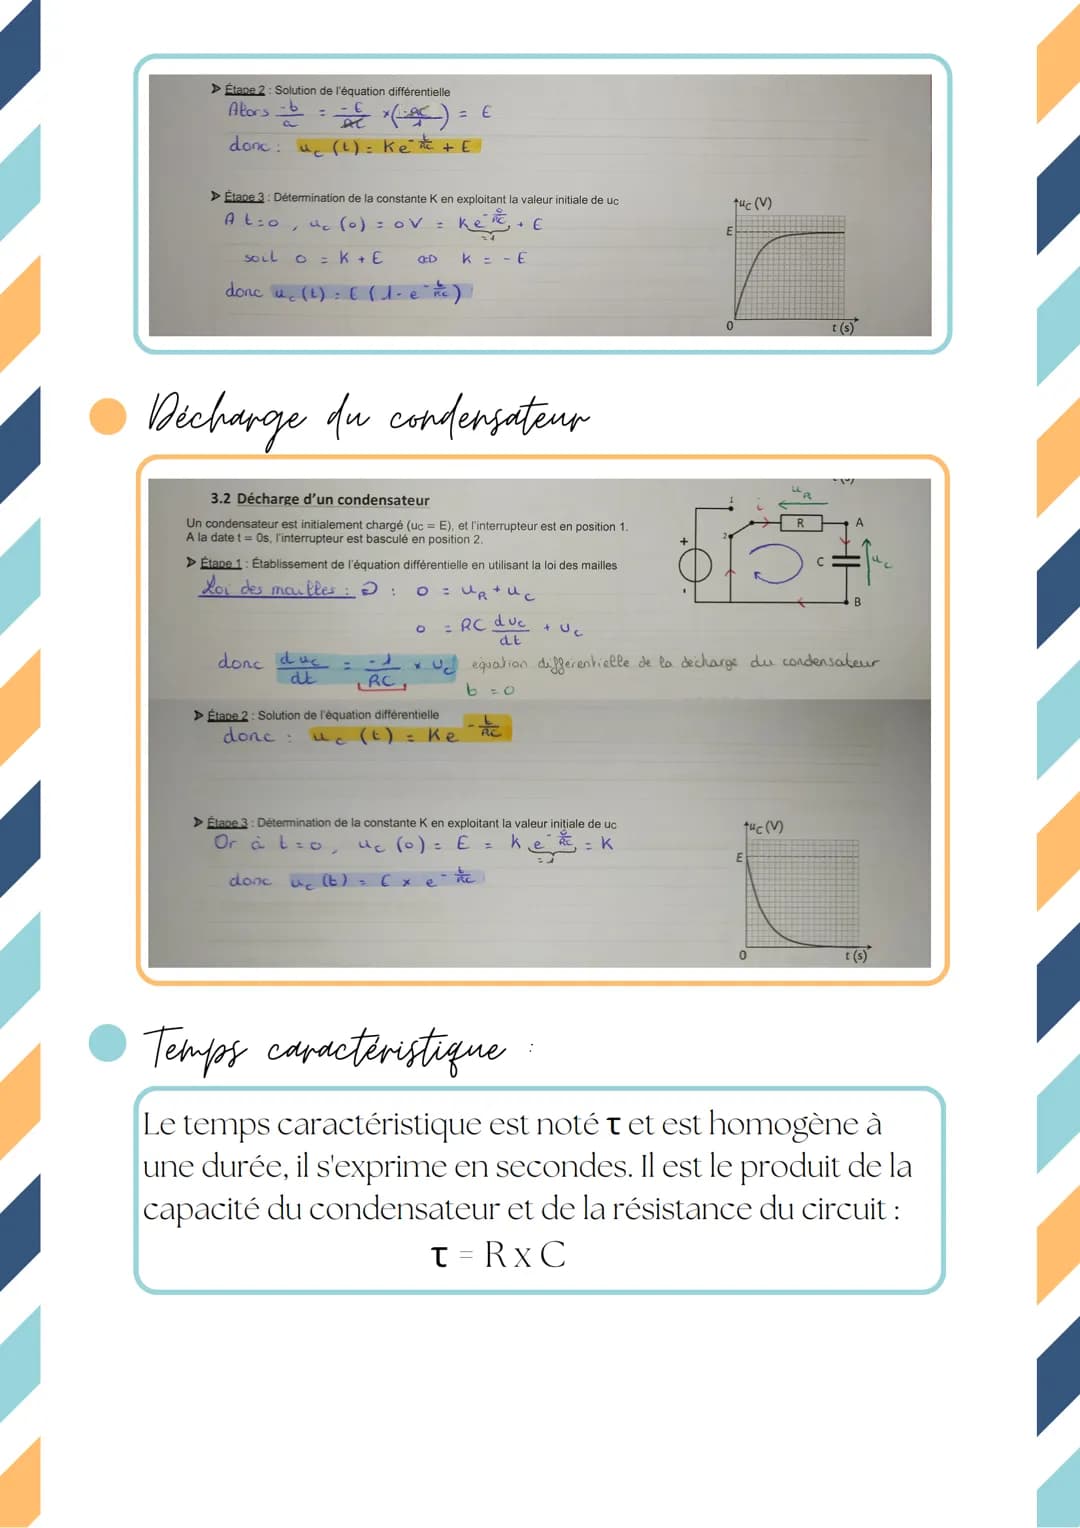 ➤ Étape 2 : Solution de l'équation différentielle
Alors -b/a = -E/RC × (-RC/1) = E
donc : uc(t) = Ke^(-t/RC) + E
➤ Étape 3 : Détermination de la constante K en exploitant la valeur initiale de uc
A t=0, uc(0) = 0V = Ke^(-0/RC) + E
=1
soit 0 = K + E ⇔ K = -E
donc uc(t) = E(1-e^(-t/RC))
uc (V)
E
0
t (s)
Décharge du condensateur
3.2 Décharge d'un condensateur
Un condensateur est initialement chargé (uc = E), et l'interrupteur est en position 1.
A la date t = 0s, l'interrupteur est basculé en position 2.
➤ Étape 1 : Établissement de l'équation différentielle en utilisant la loi des mailles
Loi des mailles : 0 = uR + uc
0 = RC duc/dt + uc
donc duc/dt = -1/RC × uc équation différentielle de la décharge du condensateur
b = 0
1
2
i
uR
R
A
C
uc
B
+
-
➤ Étape 2 : Solution de l'équation différentielle
donc : uc(t) = Ke^(-t/RC)
➤ Étape 3 : Détermination de la constante K en exploitant la valeur initiale de uc
Or à t=0, uc(0) = E = k e^(-0/RC) = K
=1
donc uc(t) = E × e^(-t/RC)
uc (V)
E
0
t (s)
Temps caractéristique :
Le temps caractéristique est noté τ et est homogène à
une durée, il s'exprime en secondes. Il est le produit de la
capacité du condensateur et de la résistance du circuit :
τ = R x C